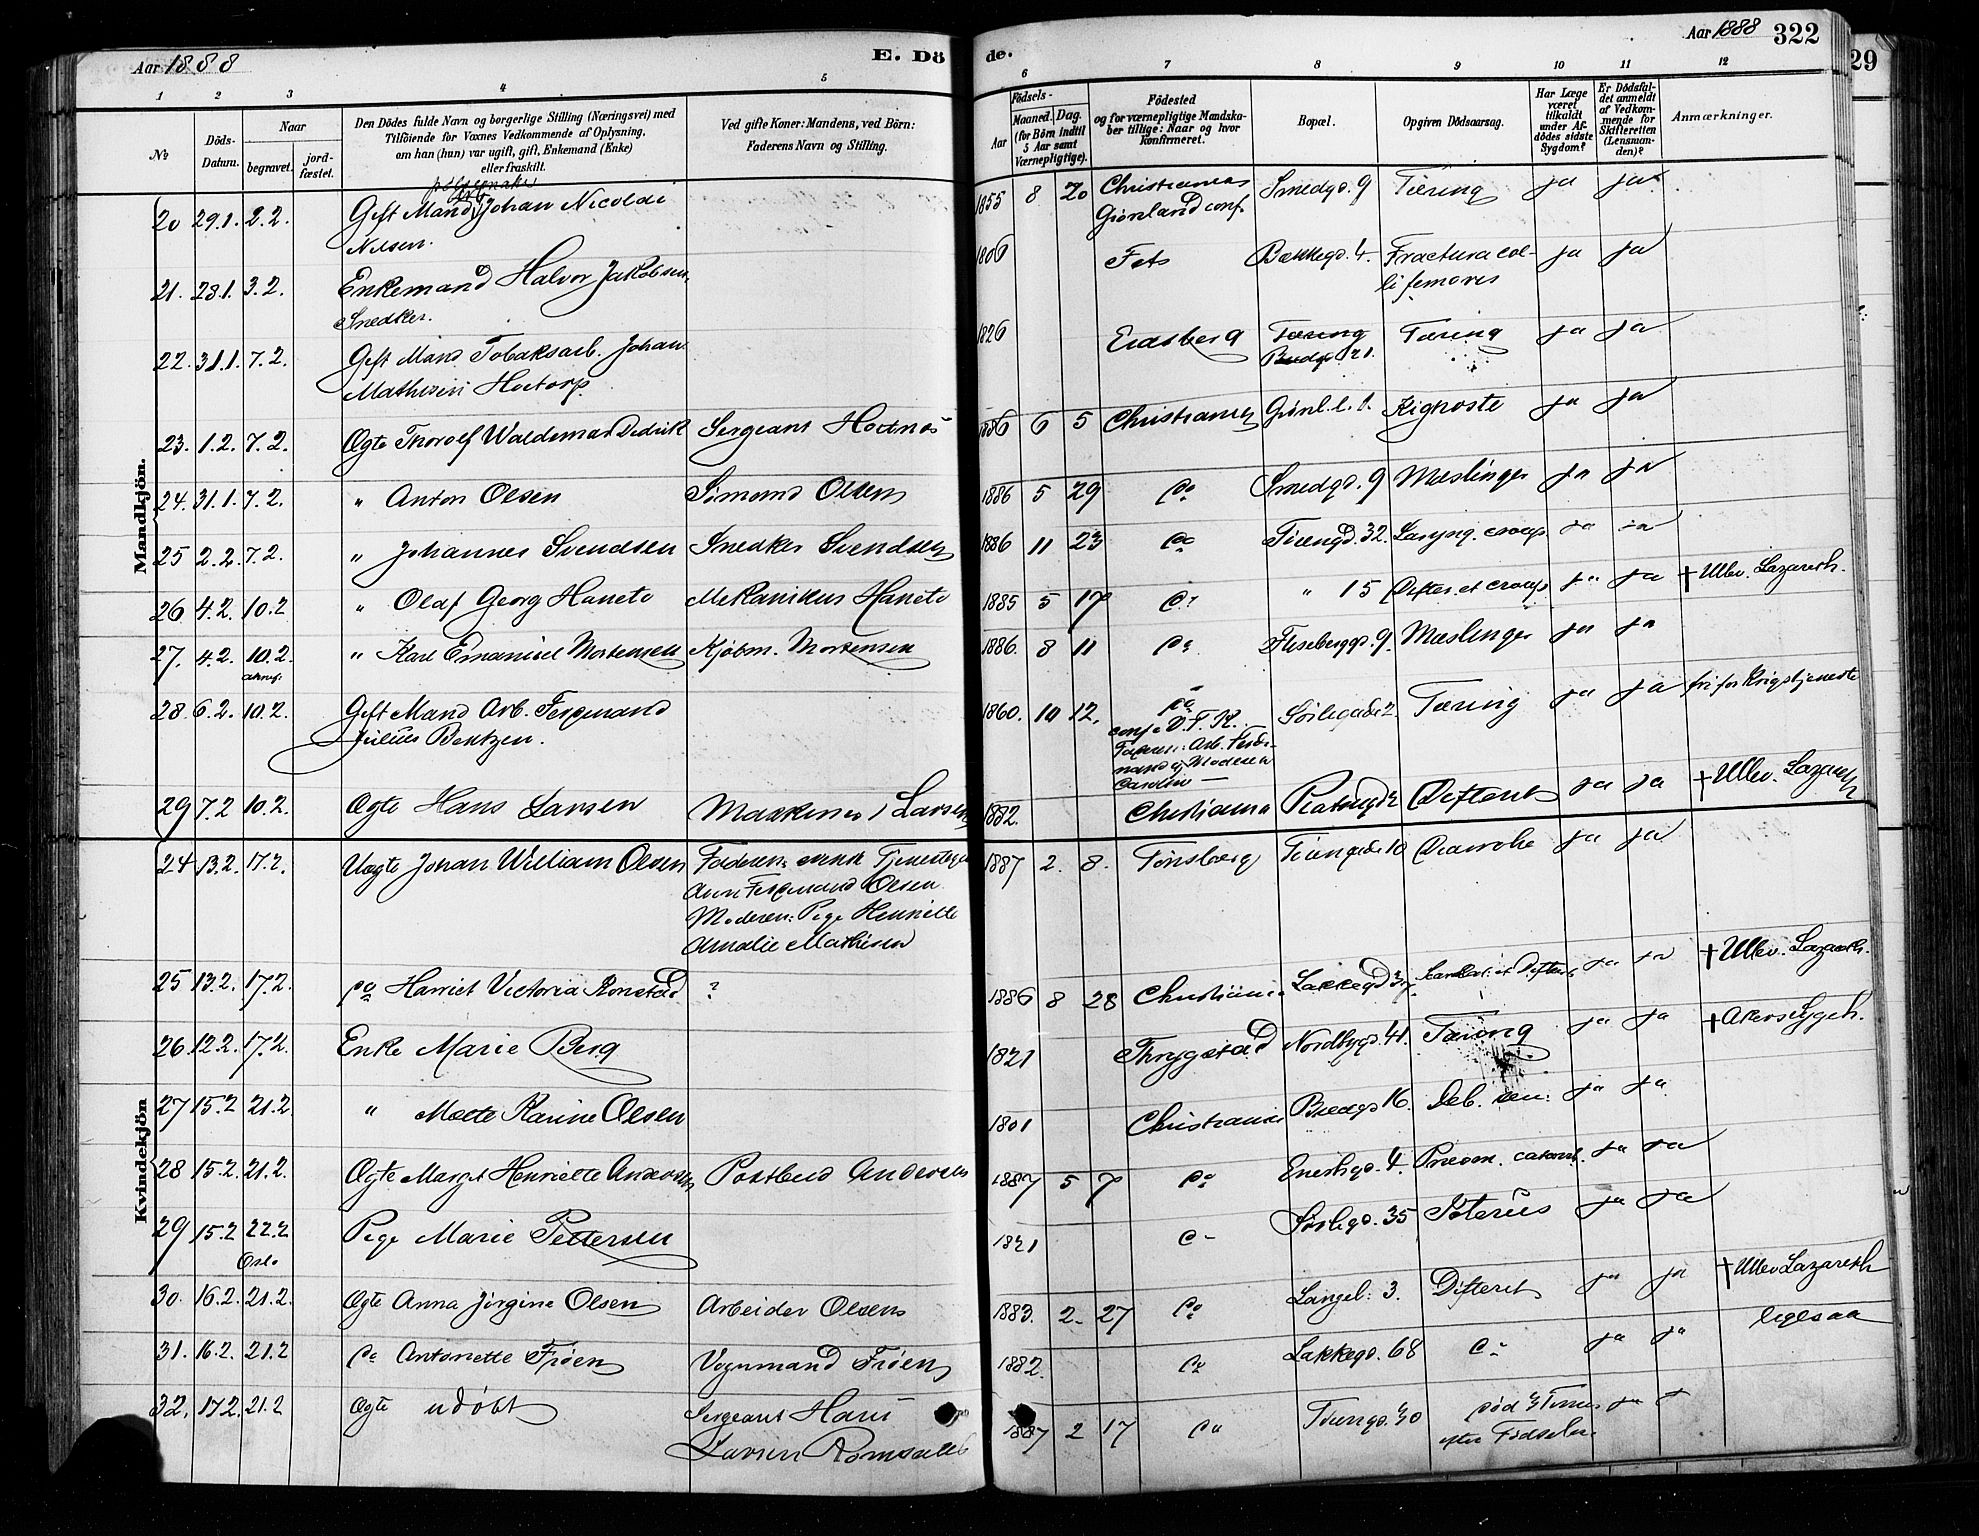 Aar 1888
E. Dö
de.
Aar 1888 322
29
1 2 3 4 5 6 7 8 9 10 11 12
№
Döds-Datum.
Naar
begravet. jordfæstet.
Den Dödes fulde Navn og borgerlige Stilling (Næringsvei) med
Tilföiende for Voxnes Vedkommende af Oplysning,
om han (hun) var ugift, gift, Enkemand (Enke)
eller fraskilt.
Ved gifte Koner: Mandens, ved Börn:
Faderens Navn og Stilling.
Födsels-
Aar Maaned. Dag.
(for Börn indtil
5 Aar samt
Værnepligtige).
Födested
og for værnepligtige Mandskaber tillige: Naar og hvor
konfirmeret.
Bopæl.
Opgiven Dödsaarsag.
Har Læge
været
tilkaldt
under Afdödes sidste
Sygdom?
Er Dödsfaldet anmeldt
af Vedkommende for
Skifteretten
(Lensmanden)?
Anmærkninger.
Mandkjön.
20 29.1. 2.2. Gift Mand Johan Nicolai 1855 8 20 Christiania Smedgd. 9 Tæring ja ja
Nilsen. Grønland conf.
21. 28.1. 3.2. Enkemand Halvor Jakobsen, 1806 Fets Bækkegd. 4. Fractura col- ja ja
Snedker. li femoris
22. 31.1. 7.2. Gift Mand Tobaksarb. Johan 1826 Eidsberg Tæring Tæring ja ja
Mathisen Hoctorp. Bredgd. 21.
23. 1.2. 7.2. Ægte Thorolf Waldemar Dedrik Sergeant Hoctnes 1886 6 5 Christiania Grønl. l. 1. Kighoste ja ja
24. 31.1. 7.2. " Anton Olsen Sømand Olsen 1886 5 29 do Smedgd. 9 Mæslinger ja ja
25 2.2. 7.2. " Johannes Svendsen Snedker Svendsen 1886 11 23 do Tøiengd. 32. Laryng. croup ja ja
26 4.2. 10.2 " Olaf Georg Hanete Mekanikus Hanete 1885 5 17 do " 15 Difter. et croup ja ja † Ullev. Lazareth.
27. 4.2. 10.2. " Karl Emanuel Mortensen Kjøbm. Mortensen 1886. 8 11 do Flisebergd. 9. Mæslinger ja ja
28. 6.2. 10.2. Gift Mand Arb. Ferdinand 1860. 10 12. do Sørligade 2. Tæring ja ja fri for Krigstjeneste
Julius Bentzen. conf. D. F. K.
Faderen: Arb. Ferdi-
nand og Moderen
Caroline —
29 7.2 10.2. Ægte Hans Larsen Maskinist Larsen 1882. Christiania Difterit ja ja † Ullev. Lazareth
Kvindekjön
24 13.2. 17.2. Uægte Johan William Olsen Faderen: Tjenestegut 1887 2. 8. Tønsberg Tøiengade 10 Diarrohe ja ja
Ferdinand Olsen
Moderen: Pige Henriette
Amalie Mathisen
25 13.2. 17.2. do Harriet Victoria Ronstad ? 1886 8 28 Christiania Lakkegd ja ja † Ullev. Lazareth.
26. 12.2. 17.2. Enke Marie Berg 1821 Thrygstad Nordbygd. 41. Tæring ja ja † Akers Sygeh.
27 15.2 21.2. " Mette Karine Olsen 1801 Christiania Bredgd. 16. Deb. sen: ja ja
28 15.2 21.2. Ægte Margit Henriette Andersen Postbud Andersen 1887 5 7 do Enerhgd. 4. Pneum. catarrh. ja ja
29 15.2 22.2 Pige Marie Pettersen 1821 do Sørligd. 35 Icterus ja ja
Oslo
30. 16.2. 21.2. Ægte Anna Jørgine Olsen Arbeider Olsens 1883. 2. 27 do Langel: 3. Difterit ja ja † Ullev Lazareth
31. 16.2. 21.2 do Antonette Frøen Vognmand Frøen 1882. do Lakkegd. 68 do ja ja ligesaa
32. 17.2. 21.2 Ægte udøbt Sergeant Hans 1887 2 17 do Tøiengd. 30 død ½ Time ja
Larsen Romsaas efter Fødselen